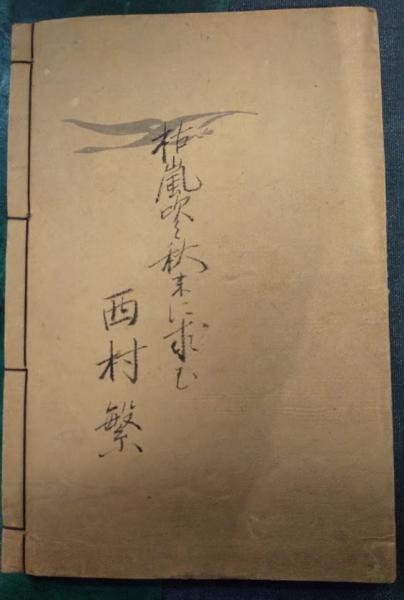 枯嵐吹く秋末に求む
西村繁